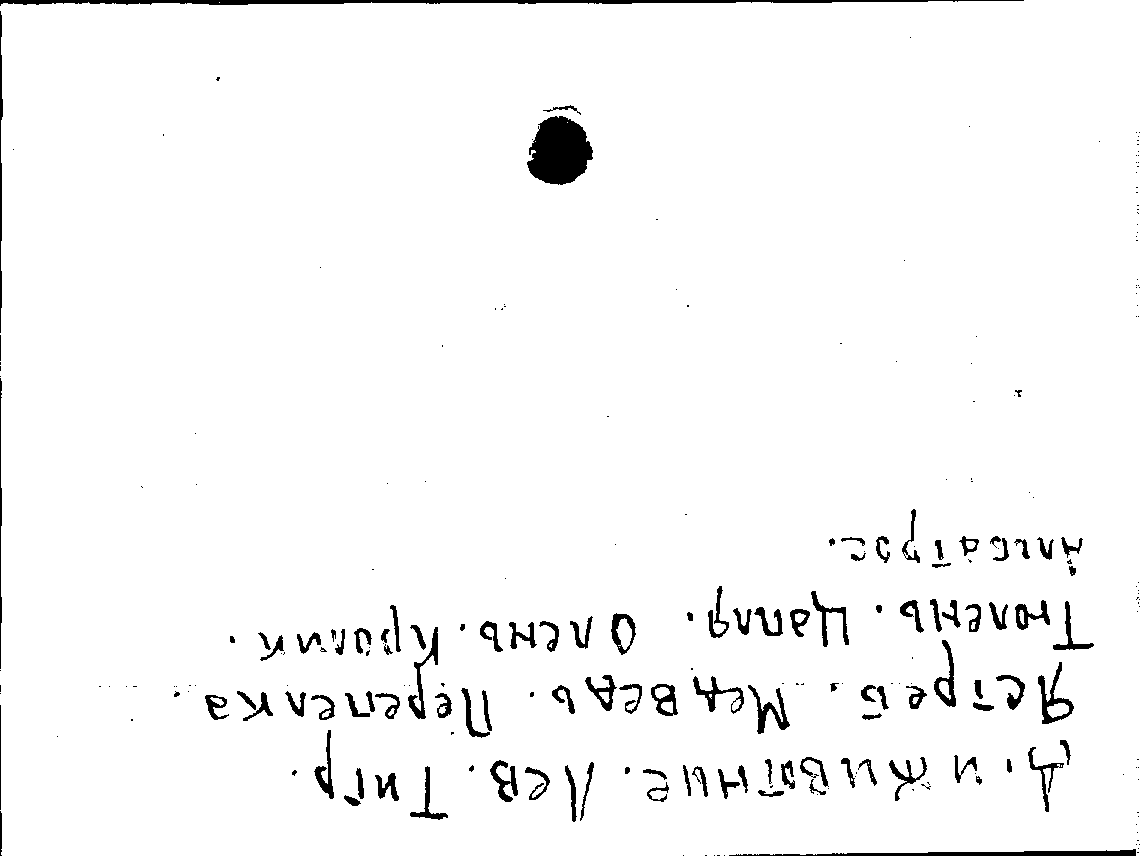 Д. и животние. Лев. Тигр.
Ястреб. Медведь. Перепелка.
Тюлень. Цапля. Олень. Кролик.
Альбатрос.